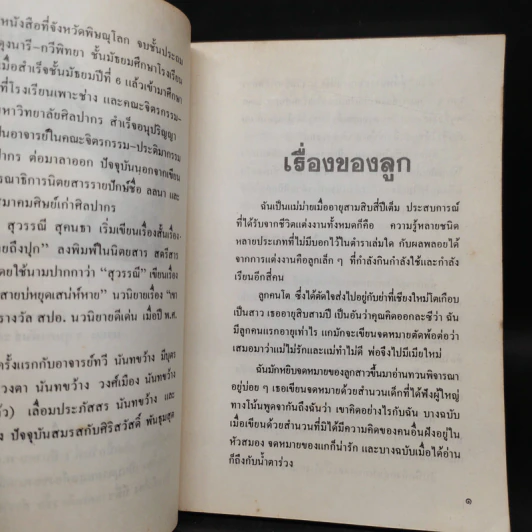 หนังสือที่จังหวัดพิษณุโลก จบชั้นประถม
ดุงนารี-ทวีพิทยา ชั้นมัธยมศึกษาโรงเรียน
เมื่อสำเร็จชั้นมัธยมปีที่ 6 แล้วเข้ามาศึกษา
ที่โรงเรียนเพาะช่าง และคณะจิตรกรรม-
มหาวิทยาลัยศิลปากร สำเร็จอนุปริญญา
ป็นอาจารย์ในคณะจิตรกรรม-ประติมากรรม
ปากร ต่อมาลาออก ปัจจุบันนอกจากเขียน
รณาธิการนิตยสารรายปักษ์ชื่อ ลลนา และ
สมาคมศิษย์เก่าศิลปากร
สุวรรณี สุคนธา เริ่มเขียนเรื่องสั้นเรื่อง
ยถึงปุก" ลงพิมพ์ในนิตยสาร สตรีสาร
ดยใช้นามปากกาว่า "สุวรรณี" เขียนเรื่อง
สายบ่หยุดเสน่ห์หาย" นวนิยายเรื่อง "เขา
รางวัล สปอ. นวนิยายดีเด่น เมื่อปี พ.ศ.
ครั้งแรกกับอาจารย์ทวี นันทขว้าง มีบุตร
วงตา นันทขว้าง วงศ์เมือง นันทขว้าง
ว) เลื่อมประภัสสร นันทขว้าง และ
ง ปัจจุบันสมรสกับศิริสวัสดิ์ พันธุมสุต
เรื่องของลูก
ฉันเป็นแม่ม่ายเมื่ออายุสามสิบสี่ปีเต็ม ประสบการณ์
ที่ได้รับจากชีวิตแต่งงานทั้งหมดก็คือ ความรู้หลายชนิด
หลายประเภทที่ไม่มีบอกไว้ในตำราเล่มใด กับผลพลอยได้
จากการแต่งงานคือลูกเล็ก ๆ ที่กำลังกินกำลังใช้และกำลัง
เรียนอีกสี่คน
ลูกคนโต ซึ่งได้ตัดใจส่งไปอยู่กับย่าที่เชียงใหม่โตเกือบ
เป็นสาว เธออายุสิบสามปี เป็นอันว่าคุณคิดออกละซีว่า ฉัน
มีลูกคนแรกอายุเท่าไร แกมักจะเขียนจดหมายตัดพ้อต่อว่า
เสมอมาว่าแม่ไม่รักและแม่ทำไม่ดี พ่อจึงไปมีเมียใหม่
ฉันมักหยิบจดหมายของลูกสาวขึ้นมาอ่านทวนพิจารณา
อยู่บ่อย ๆ เธอเขียนจดหมายด้วยสำนวนเด็กที่ได้ฟังผู้ใหญ่
ทางโน้นพูดจากันถึงฉันว่า เขาคิดอย่างไรกับฉัน บางฉบับ
เมื่อเขียนด้วยสำนวนที่มิได้มีความคิดของคนอื่นฝังอยู่ใน
หัวสมอง จดหมายของแกก็น่ารัก และบางฉบับเมื่อได้อ่าน
ก็ถึงกับน้ำตาร่วง
๑